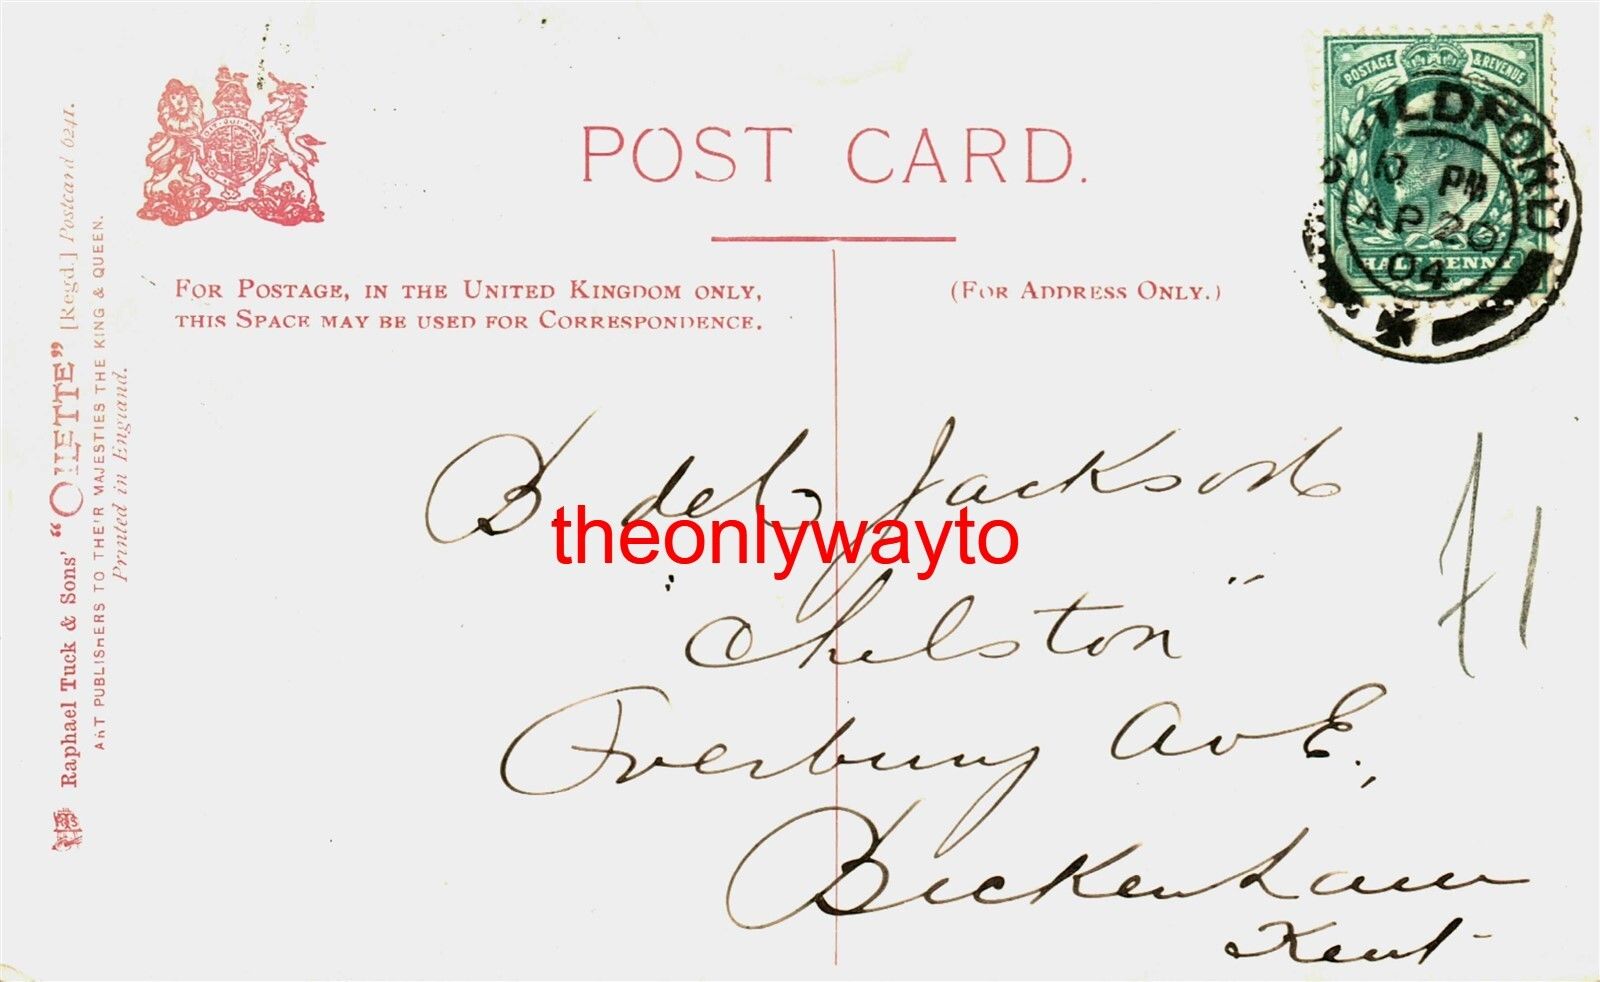 POST CARD.
FOR POSTAGE, IN THE UNITED KINGDOM ONLY,
THIS SPACE MAY BE USED FOR CORRESPONDENCE.
(FOR ADDRESS ONLY.)
POSTAGE & REVENUE
HALFPENNY
GUILDFORD
PM
AP 20
04
Raphael Tuck & Sons' "OILETTE" [Regd.] Postcard 6241.
ART PUBLISHERS TO THEIR MAJESTIES THE KING & QUEEN.
Printed in England.
B Jackson
theonlywayto
"Chelston"
Overbury AvE.,
Beckenham
Kent